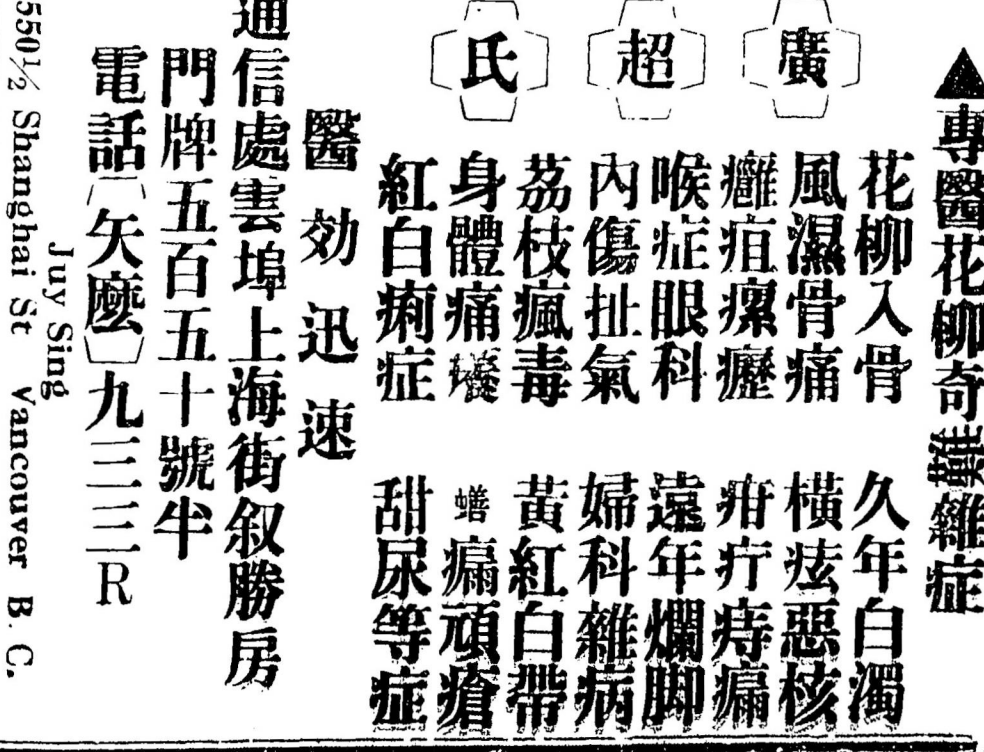 ▲專醫花柳奇難雜症
廣超氏
花柳入骨 久年白濁
風濕骨痛 橫痃惡核
癰疽瘰癧 疳疔痔痛
喉症眼科 遠年爛脚
內傷扯氣 婦科雜病
茘枝瘋毒 黃紅白帶
身體痛 蟮痛頑瘡
紅白痢症 甜尿等症
醫効迅速
通信處雲埠上海街叙勝房
門牌五百五十號半
電話(矢麼)九三三R
Juy Sing
550½ Shanghai St Vancouver B. C.